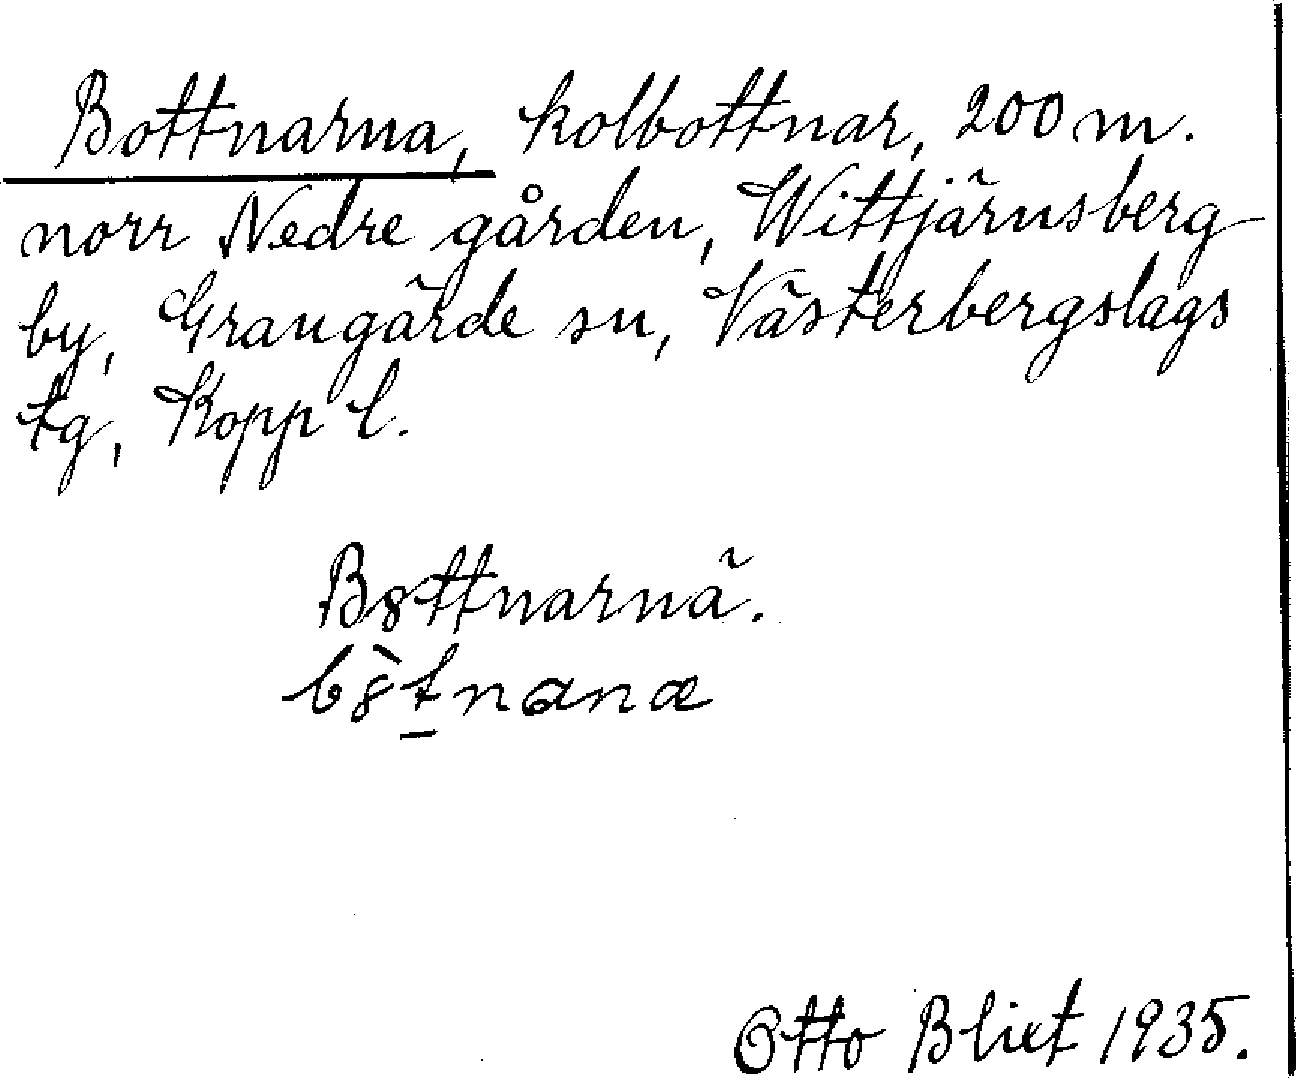 Bottnarna, kolbottnar, 200 m.
norr Nedre gården, Wittjärnsberg
by, Grangärde sn, Västerbergslags
tg, Kopp l.
B8ttnarnä.
b8̀t̠nanæ
Otto Blixt 1935.